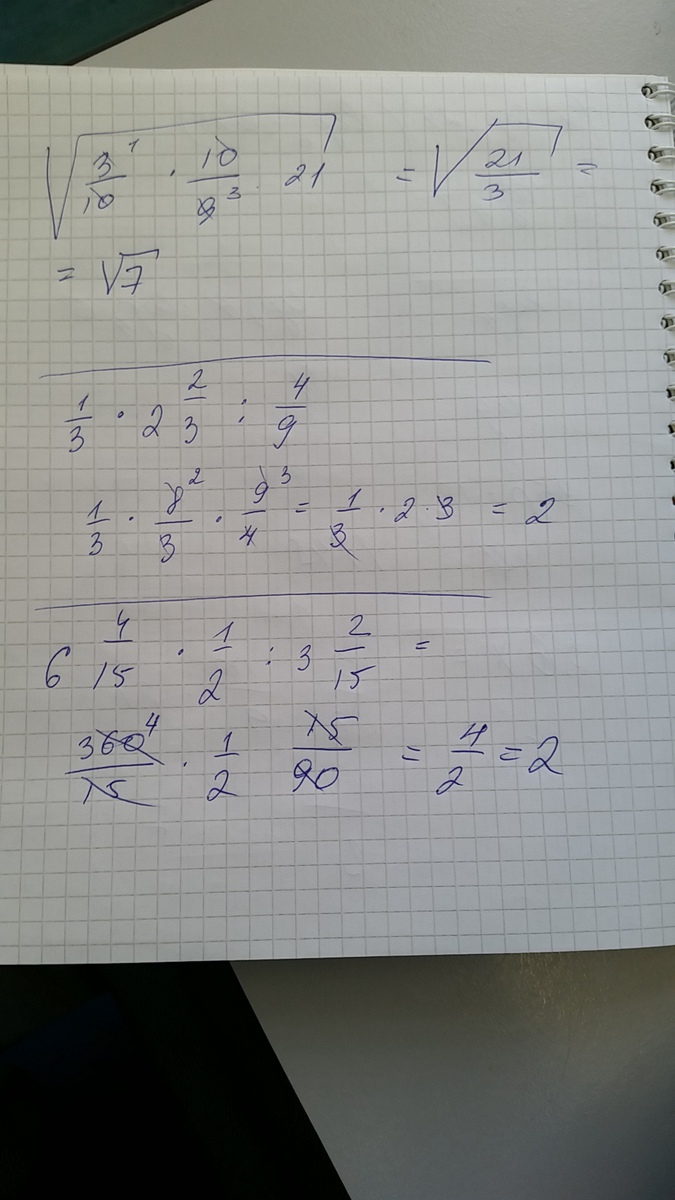 √(3/10 ¹ · 10/9 ³ · 21) = √(21/3) =
= √7
1/3 · 2 2/3 : 4/9
1/3 · 8/3 ² · 9/4 ³ = 1/3 · 2 · 3 = 2
6 4/15 · 1/2 : 3 2/15 =
360/15 ⁴ · 1/2 15/90 = 4/2 = 2